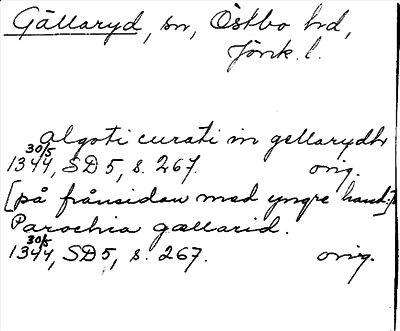 Gällaryd, sn, Östbo hd,
Jönk. l.
Algoti curati in gellarydh
30/5 1344, SD 5, s. 267. orig.
[på frånsidan med yngre hand:]
Parochia gællarid.
30/5 1344, SD 5, s. 267. orig.